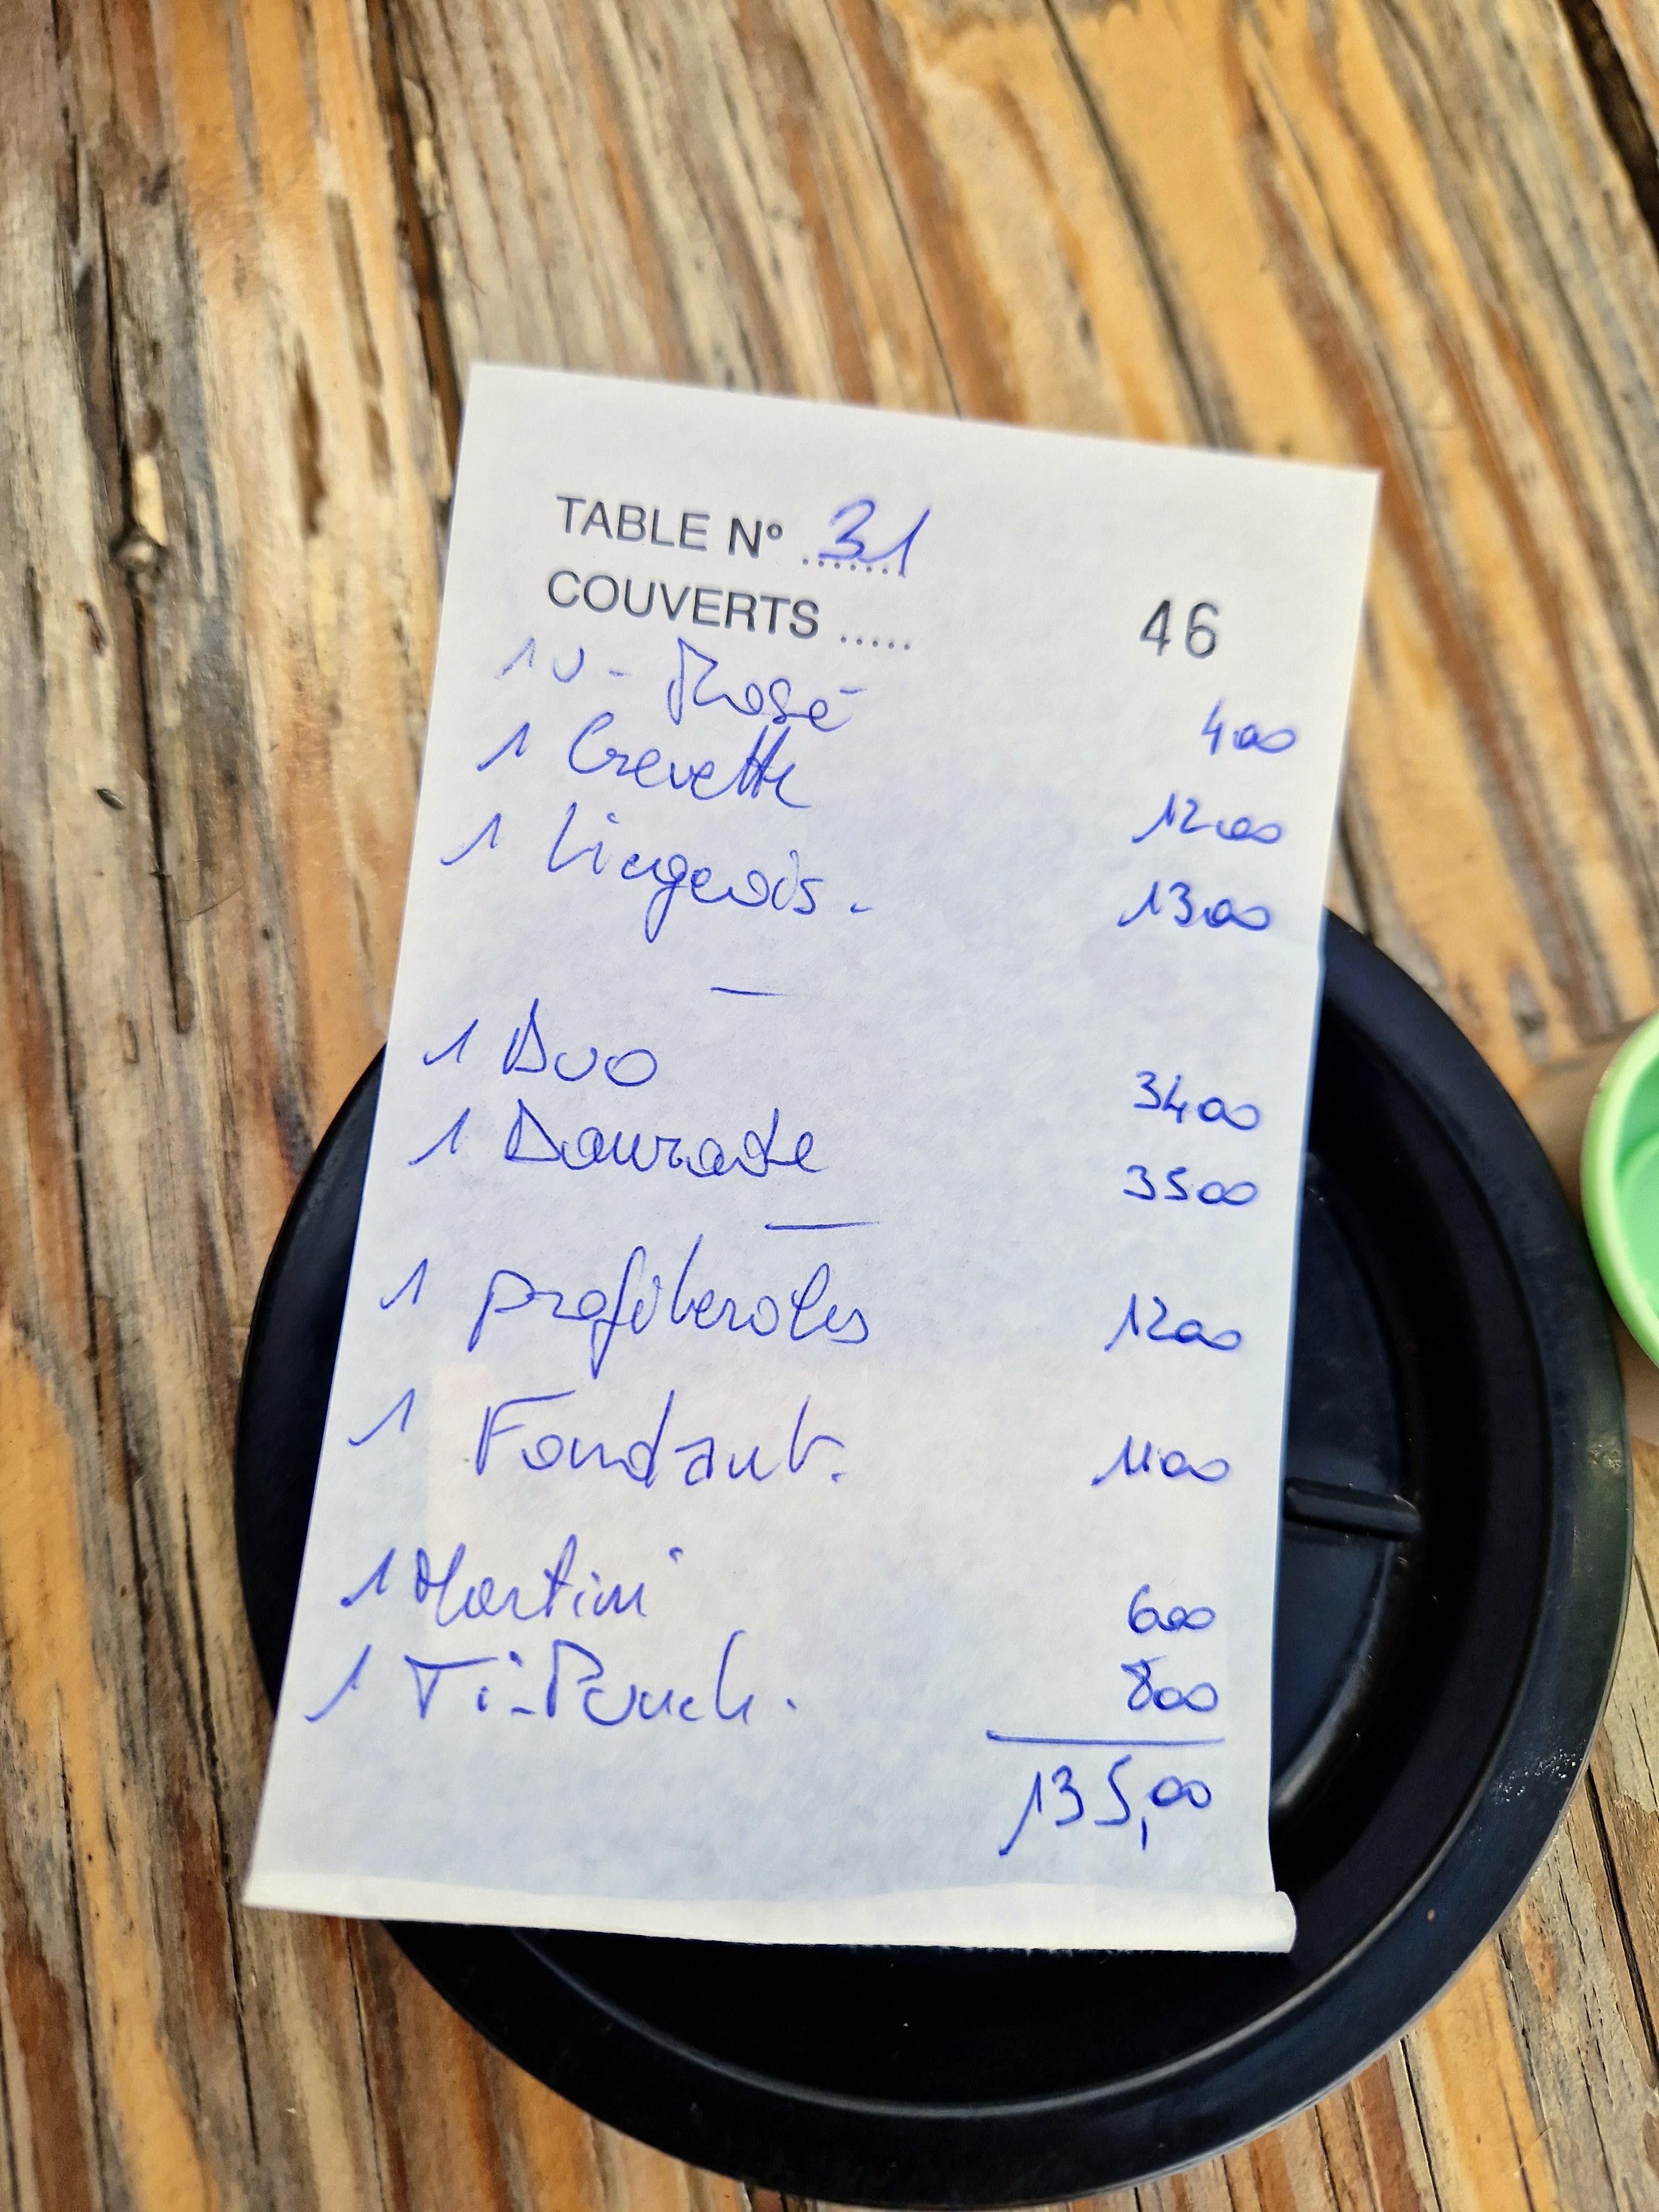 TABLE N° 31
COUVERTS ..... 46
1 V - Rosé 400
1 Crevette 1200
1 1300
1 Duo 3400
1 Daurade 3500
1 profiteroles 1200
1 Fondant. 1100
1 Martini 600
1 Ti-Punch. 800
135,00